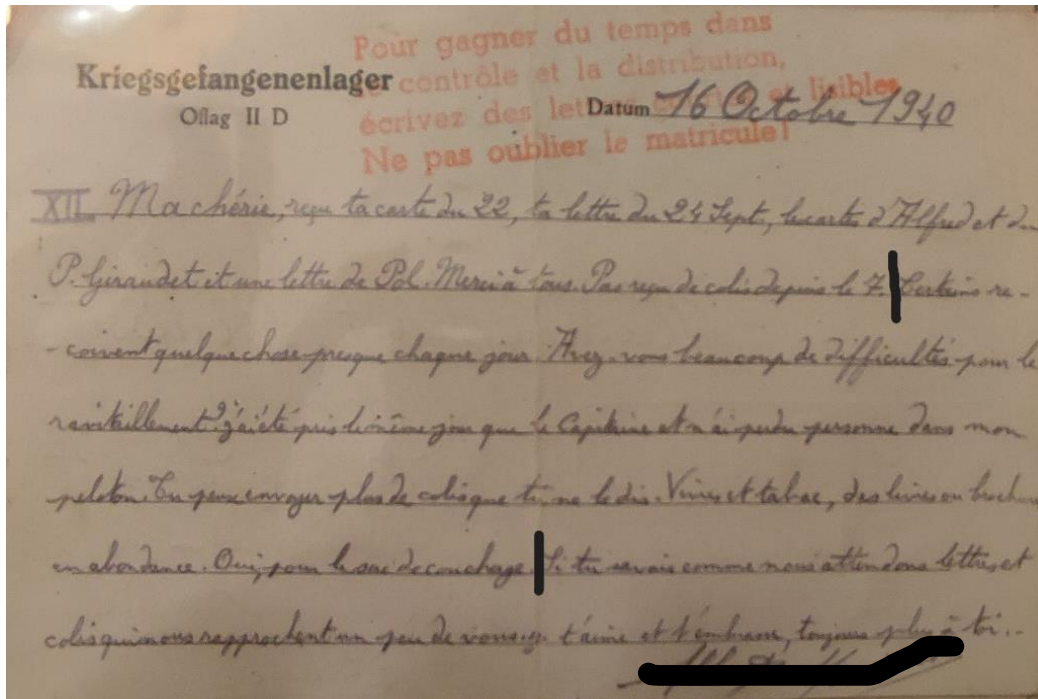 Pour gagner du temps dans
le contrôle et la distribution,
écrivez des lettres et lisibles
Ne pas oublier le matricule!
Kriegsgefangenenlager
Oflag II D
Datum 16 Octobre 1940
XII Ma chérie, reçu ta carte du 22, ta lettre du 24 Sept., les cartes d'Alfred et du
P. Giraudet et une lettre de Pol. Merci à tous. Pas reçu de colis depuis le 7. Certains re-
-çoivent quelque chose presque chaque jour. Avez-vous beaucoup de difficultés pour le
ravitaillement? J'ai été pris le même jour que le Capitaine et n'ai perdu personne dans mon
peloton. Tu peux envoyer plus de colis que tu ne le dis. Vivres et tabac, des livres ou
en abondance. Oui, pour le sac de couchage. Si tu savais comme nous attendons lettres et
colis qui nous rapprochent un peu de vous. Je t'aime et t'embrasse, toujours plus à toi.-